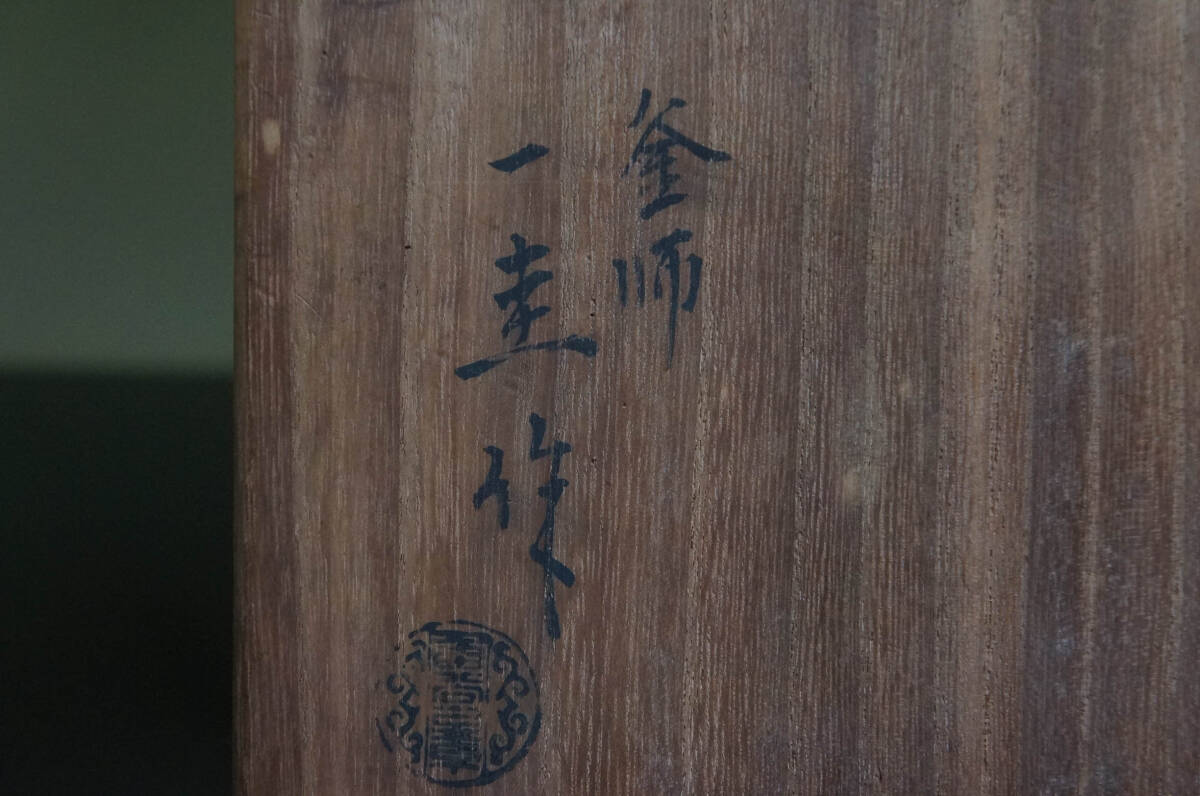 釜師
一圭作